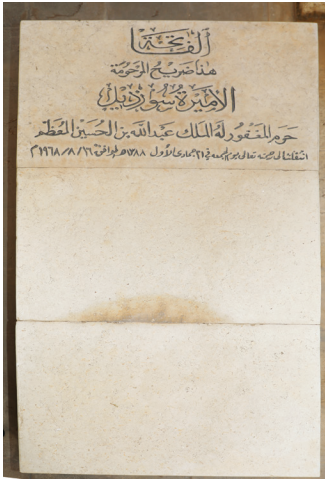 الفاتحة
هذا ضريح المرحومة
الأميرة سوزديل
حرم المغفور له الملك عبدالله بن الحسين المعظم
انتقلت الى رحمته تعالى يوم الجمعة في ٢١ جمادى الأول ١٣٨٨ هـ الموافق ١٦ / ٨ / ١٩٦٨ م